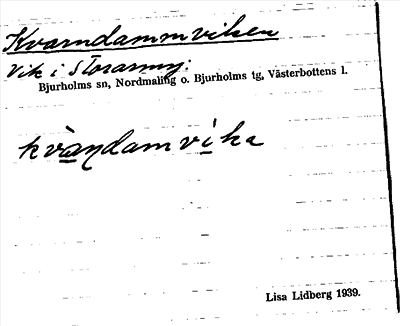 Kvarndammviken
Vik i Storarmyg:
Bjurholms sn, Nordmaling o. Bjurholms tg, Västerbottens l.
kvàṇdamvika
Lisa Lidberg 1939.